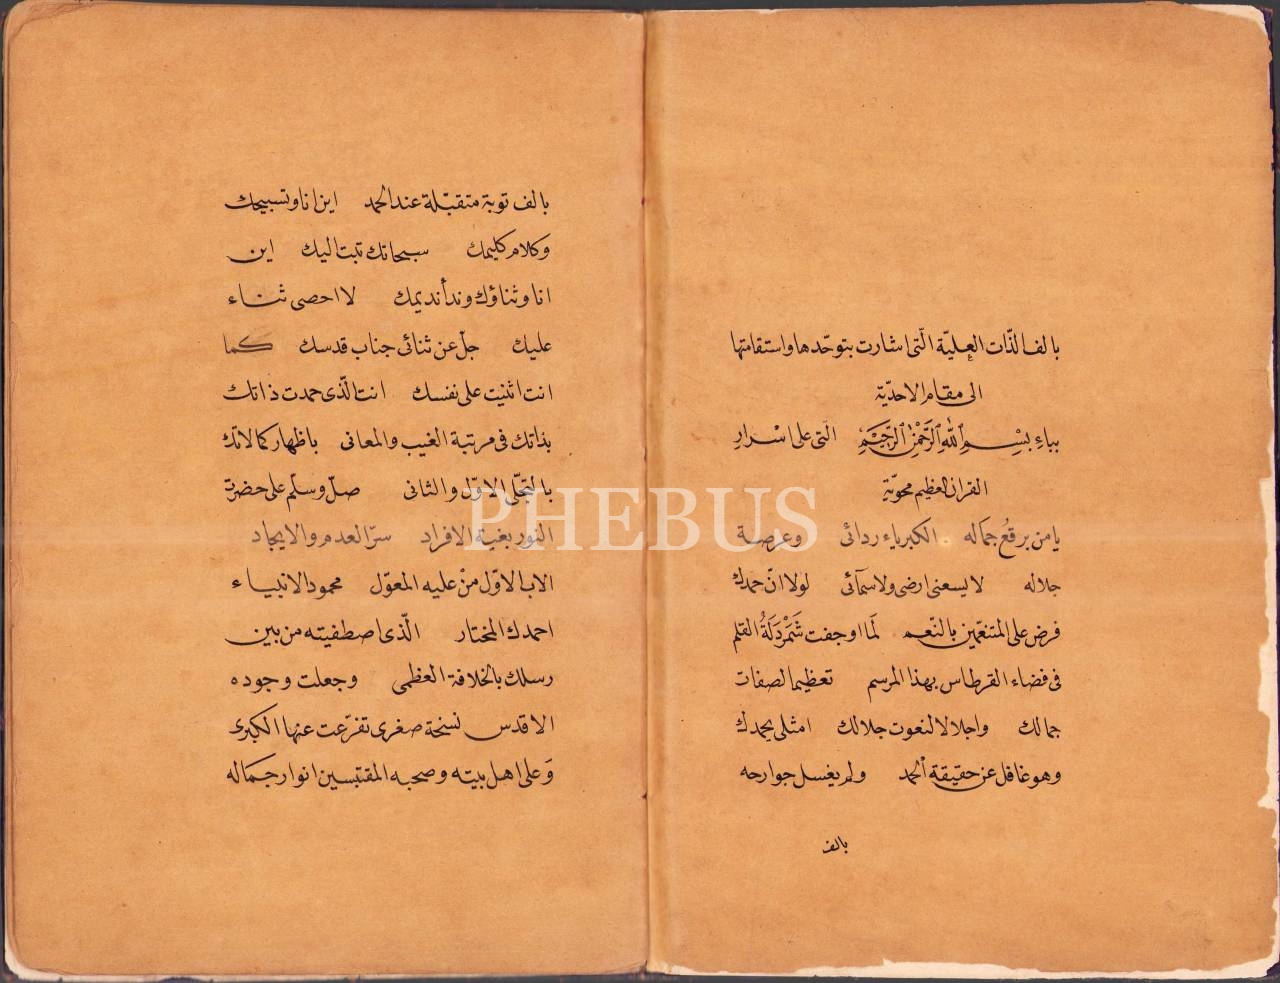 بالف الذّات العليّة الّتى اشارت بتوحّدها واستقامتها
الى مقام الاحديّة
بباءِ بِسْــمِ ٱللّٰهِ ٱلرَّحْمٰنِ ٱلرَّحِيْمِ التى على اسْرارِ
القران العظيم محويّة
يا من برقعُ جماله الكبرياء ردائى وعرصة
جلاله لا يسعنى ارضى ولا سمآئى لولا انّ حمدك
فرض على المتنعّمين بالنّعم لَمّا اوجفت شَمَرْدَلَةُ القلم
فى فضاء القرطاس بهذا المرسم تعظيما لصفات
جمالك واجلالا لنعوت جلالك امثلى يحمدك
وهو غافل عن حقيقة الحمد ولم يغسل جوارحه
بالف
بالف توبة متقبّلة عند الحمد اين انا وتسبيحك
وكلام كليمك سبحانك تبت اليك اين
انا وثناؤك وندأ نديمك لا احصى ثنــاء
عليك جلّ عن ثنائى جناب قدسك كما
انت اثنيت على نفسك انت الّذى حمدت ذاتك
بذاتك فى مرتبة الغيب والمعانى باظهار كمالاتك
بالتجلّى الاوّل والثانى صلّ وسلّم على حضرة
النور بغية الافراد سرّ العدم والايجاد
الاب الاوّل منْ عليه المعوّل محمود الانبيــاء
احمدك المختار الّذى اصطفيته من بين
رسلك بالخلافة العظمى وجعلت وجوده
الاقدس نسخة صغرى تفرّعت عنها الكبرى
وَعلى اهل بيته وصحبه المقتبسين انوار جماله
PHEBUS